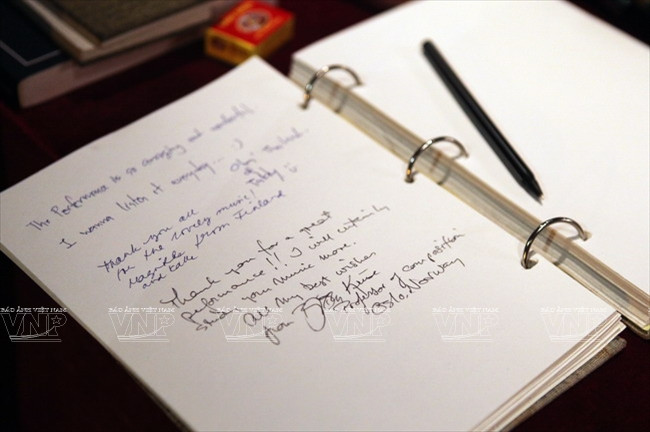 The Performance is so amazing and wonderful
I wanna listen it everyday... :)
Thank you all
for the lovely music!
from Finland
Thank you for a great
performance!! I will certainly
study your music more.
All my best wishes
from
Professor of composition
Oslo, Norway
BÁO ẢNH VIỆT NAM
VNP
BÁO ẢNH VIỆT NAM
VNP
BÁO ẢNH VIỆT NAM
VNP
BÁO ẢNH VIỆT NAM
VNP
BÁO ẢNH VIỆT NAM
VNP
BÁO ẢNH VIỆT NAM
VNP